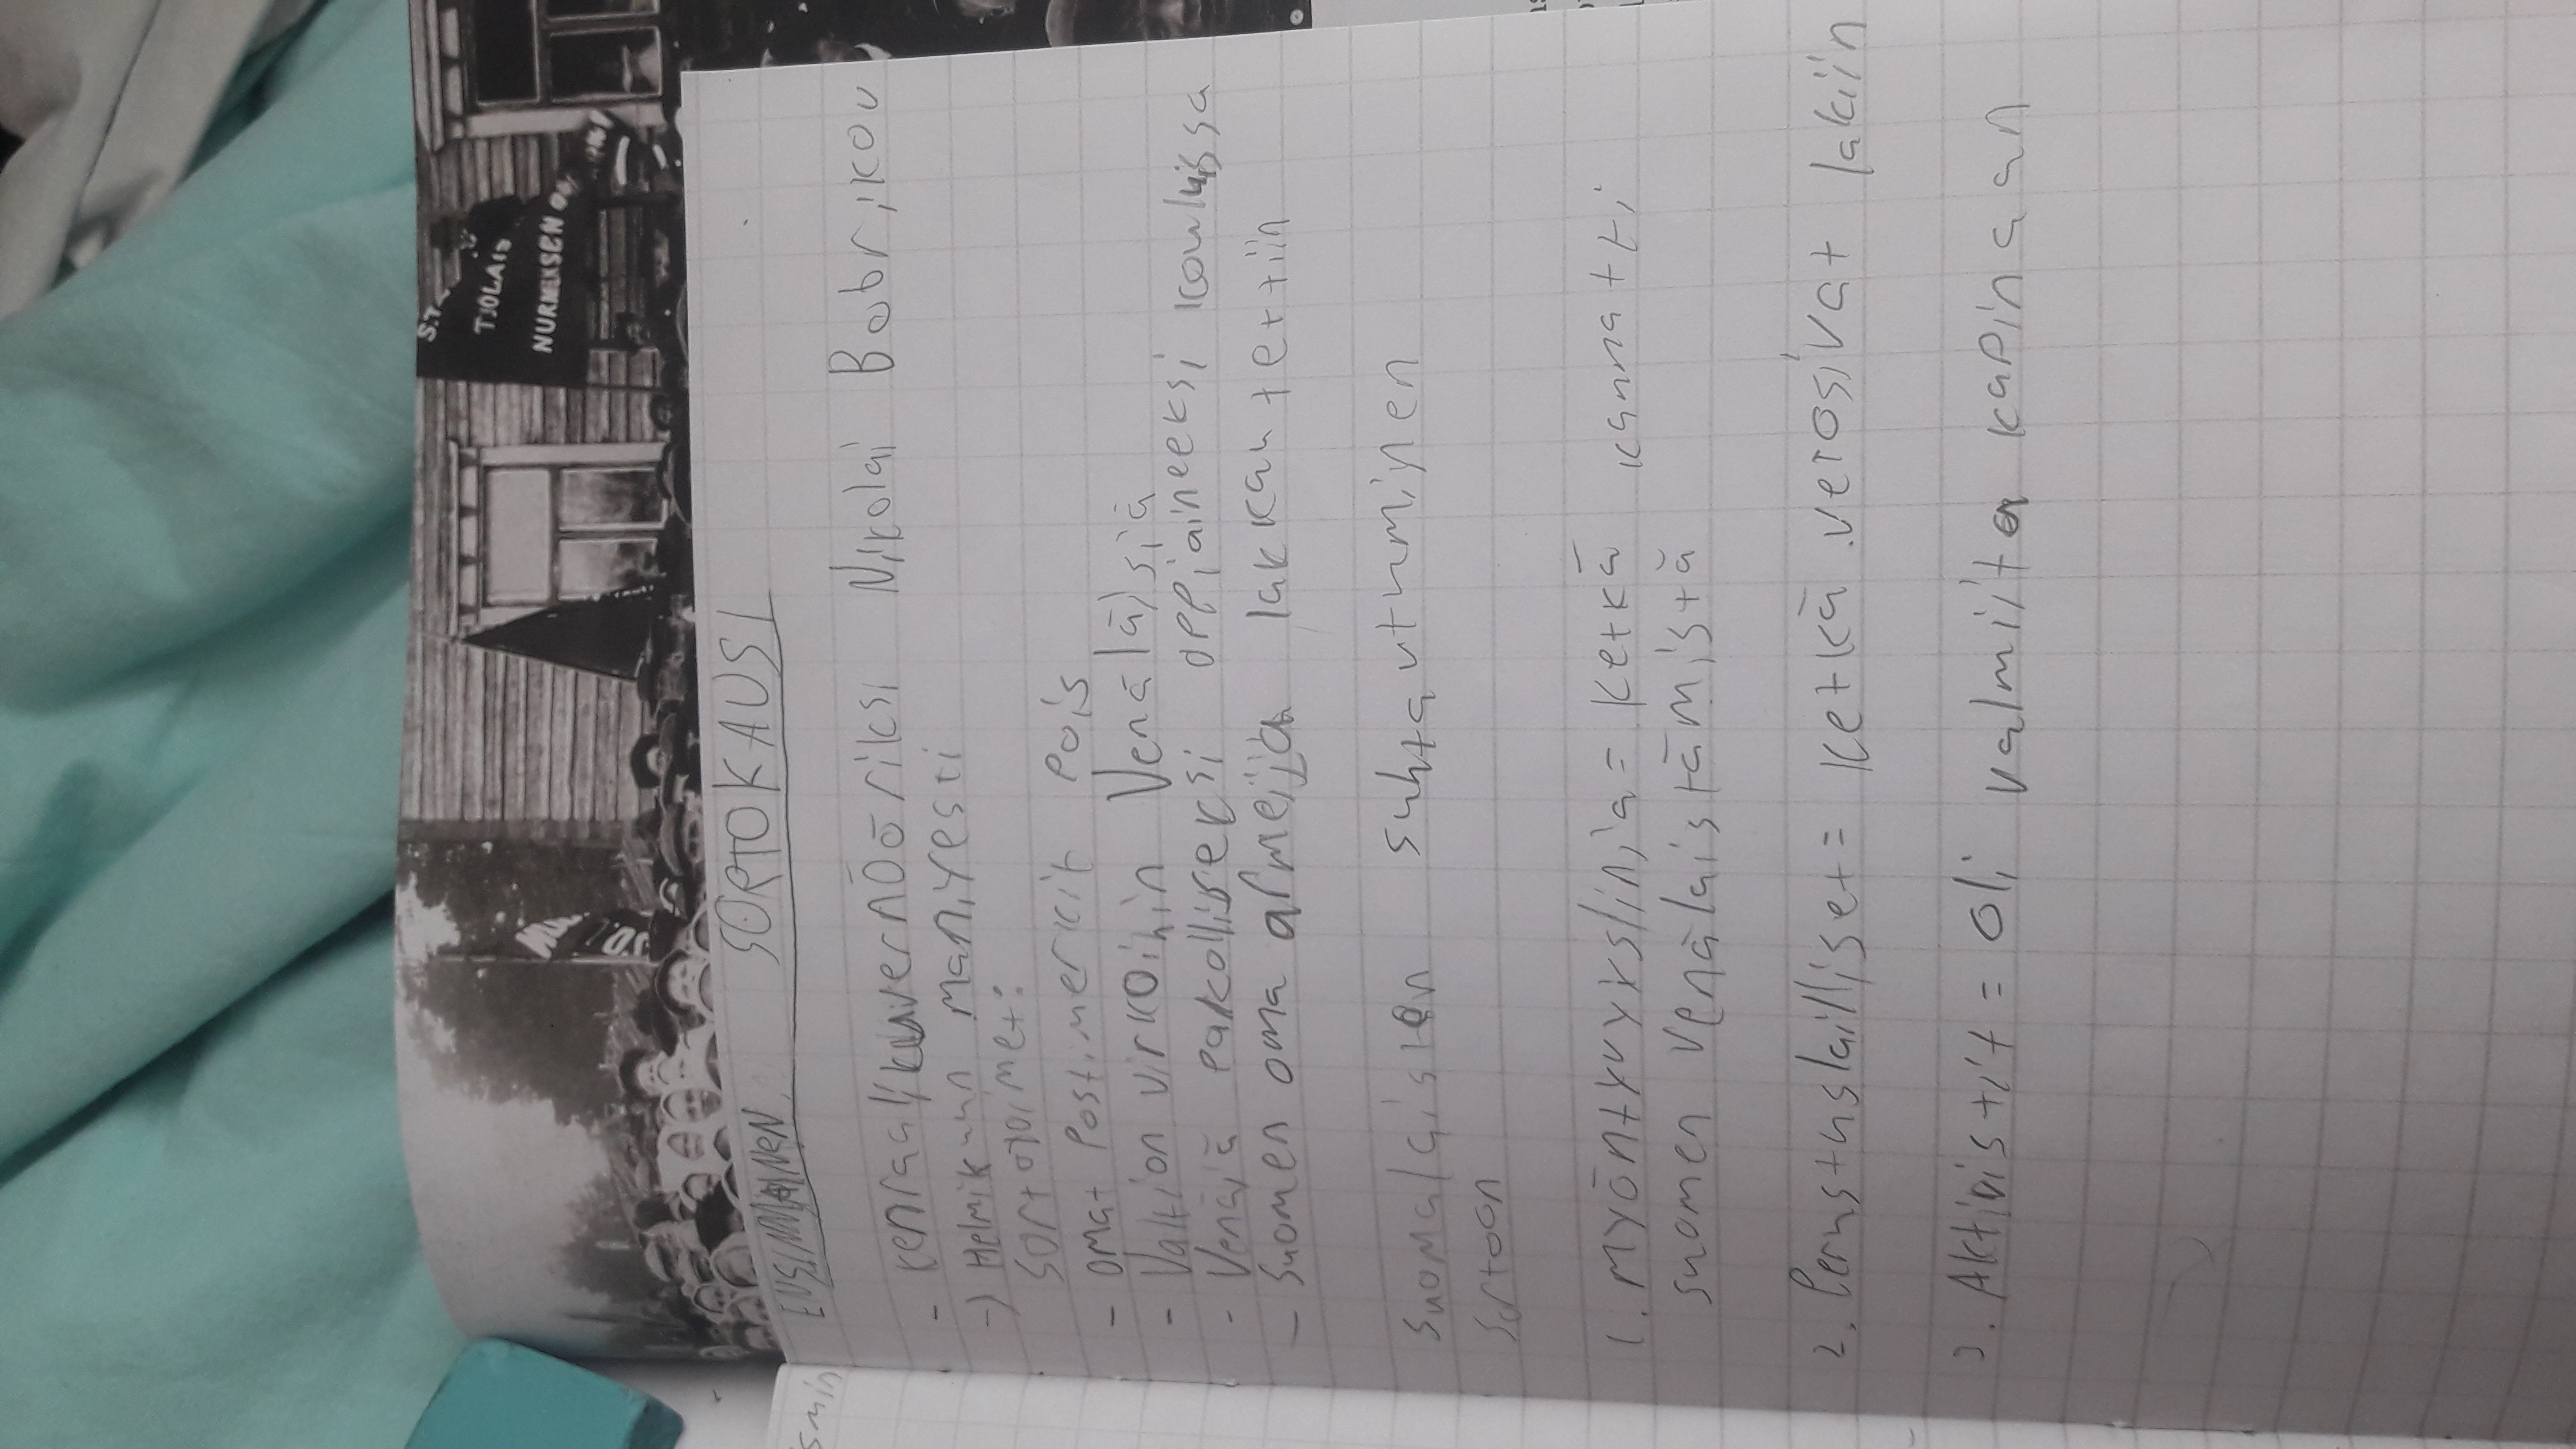 ENSIMMÄINEN SORTOKAUSI
- kenraalikuvernööriksi Nikolai Bobrikov
-> Helmikuun manifesti
Sortotoimet:
- omat Postimerkit pois
- Valtion virkoihin Venäläisiä
- Venäjä pakolliseksi oppiaineeksi kouluissa
- Suomen oma armeija lakkautettiin
Suomalaisten suhtautuminen
Sortoon
1. myöntyvyyslinja = ketkä kannatti
suomen venäläistämistä
2. Perustuslailliset = ketkä vetosivat lakiin
3. Aktivistit = oli valmiita kapinaan
S.T.
TJOLAIS
NURMEKSEN O